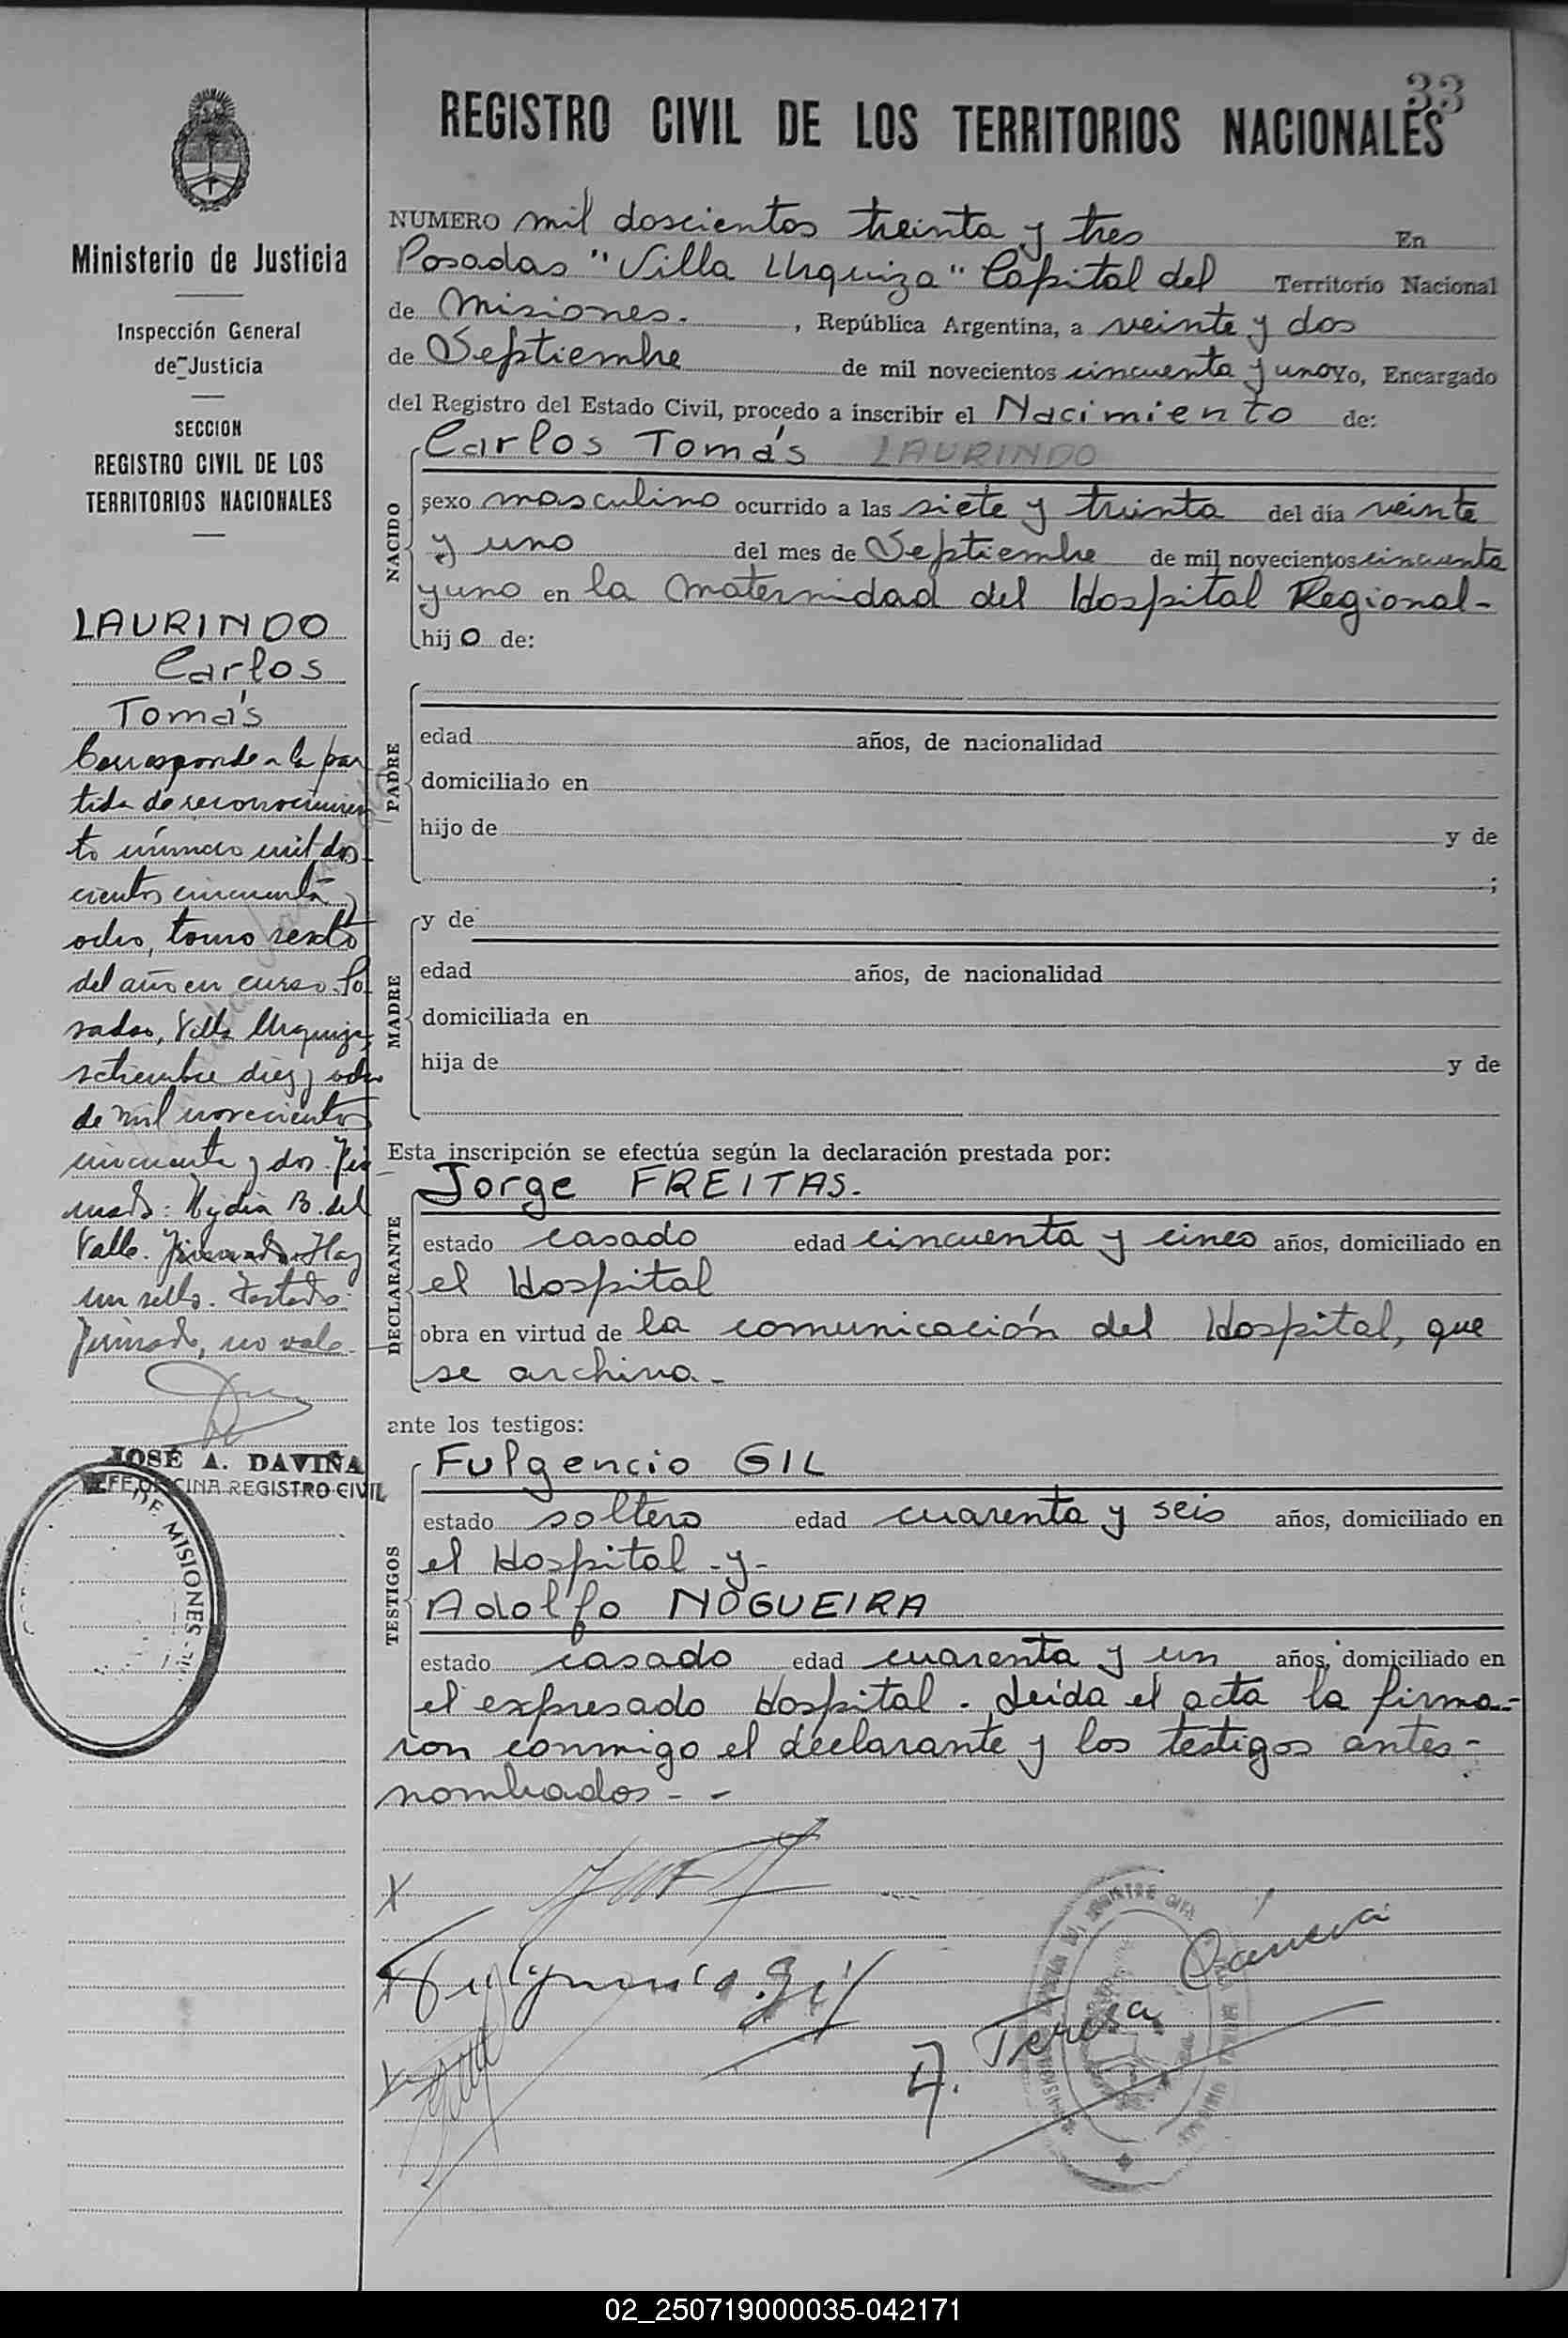 33
REGISTRO CIVIL DE LOS TERRITORIOS NACIONALES
Ministerio de Justicia
Inspección General
de Justicia
SECCION
REGISTRO CIVIL DE LOS
TERRITORIOS NACIONALES
LAURINDO
Carlos
Tomás
Corresponde a la par
tida de reconocimien
to número mil dos-
cientos cincuenta y
ocho, tomo sexto
del año en curso. Po
sadas, Villa Urquiza,
setiembre diez y ocho
de mil novecientos
cincuenta y dos. Fir
mado: Nydia B. del
Valle. Firmado. Hay
un sello. Testado:
Firmado, no vale.
JOSÉ A. DAVIÑA
JEFE OFICINA REGISTRO CIVIL
DE MISIONES
NUMERO mil doscientos treinta y tres En
Posadas "Villa Urquiza" Capital del Territorio Nacional
de Misiones. , República Argentina, a veinte y dos
de Septiembre de mil novecientos cincuenta y uno Yo, Encargado
del Registro del Estado Civil, procedo a inscribir el Nacimiento de:
NACIDO
Carlos Tomás LAURINDO
sexo masculino ocurrido a las siete y treinta del día veinte
y uno del mes de Septiembre de mil novecientos cincuenta
y uno en la Maternidad del Hospital Regional-
hijo de:
PADRE
edad años, de nacionalidad
domiciliado en
hijo de y de
;
MADRE
y de
edad años, de nacionalidad
domiciliada en
hija de y de
Esta inscripción se efectúa según la declaración prestada por:
DECLARANTE
Jorge FREITAS.
estado casado edad cincuenta y cinco años, domiciliado en
el Hospital
obra en virtud de la comunicación del Hospital, que
se archiva.-
ante los testigos:
TESTIGOS
Fulgencio GIL
estado soltero edad cuarenta y seis años, domiciliado en
el Hospital -y-
Adolfo NOGUEIRA
estado casado edad cuarenta y un años, domiciliado en
el expresado Hospital. Leída el acta la firma-
ron conmigo el declarante y los testigos antes-
nombrados- -
X
X Fulgencio Gil
X
A. Teresa Cáneva
02_250719000035-042171